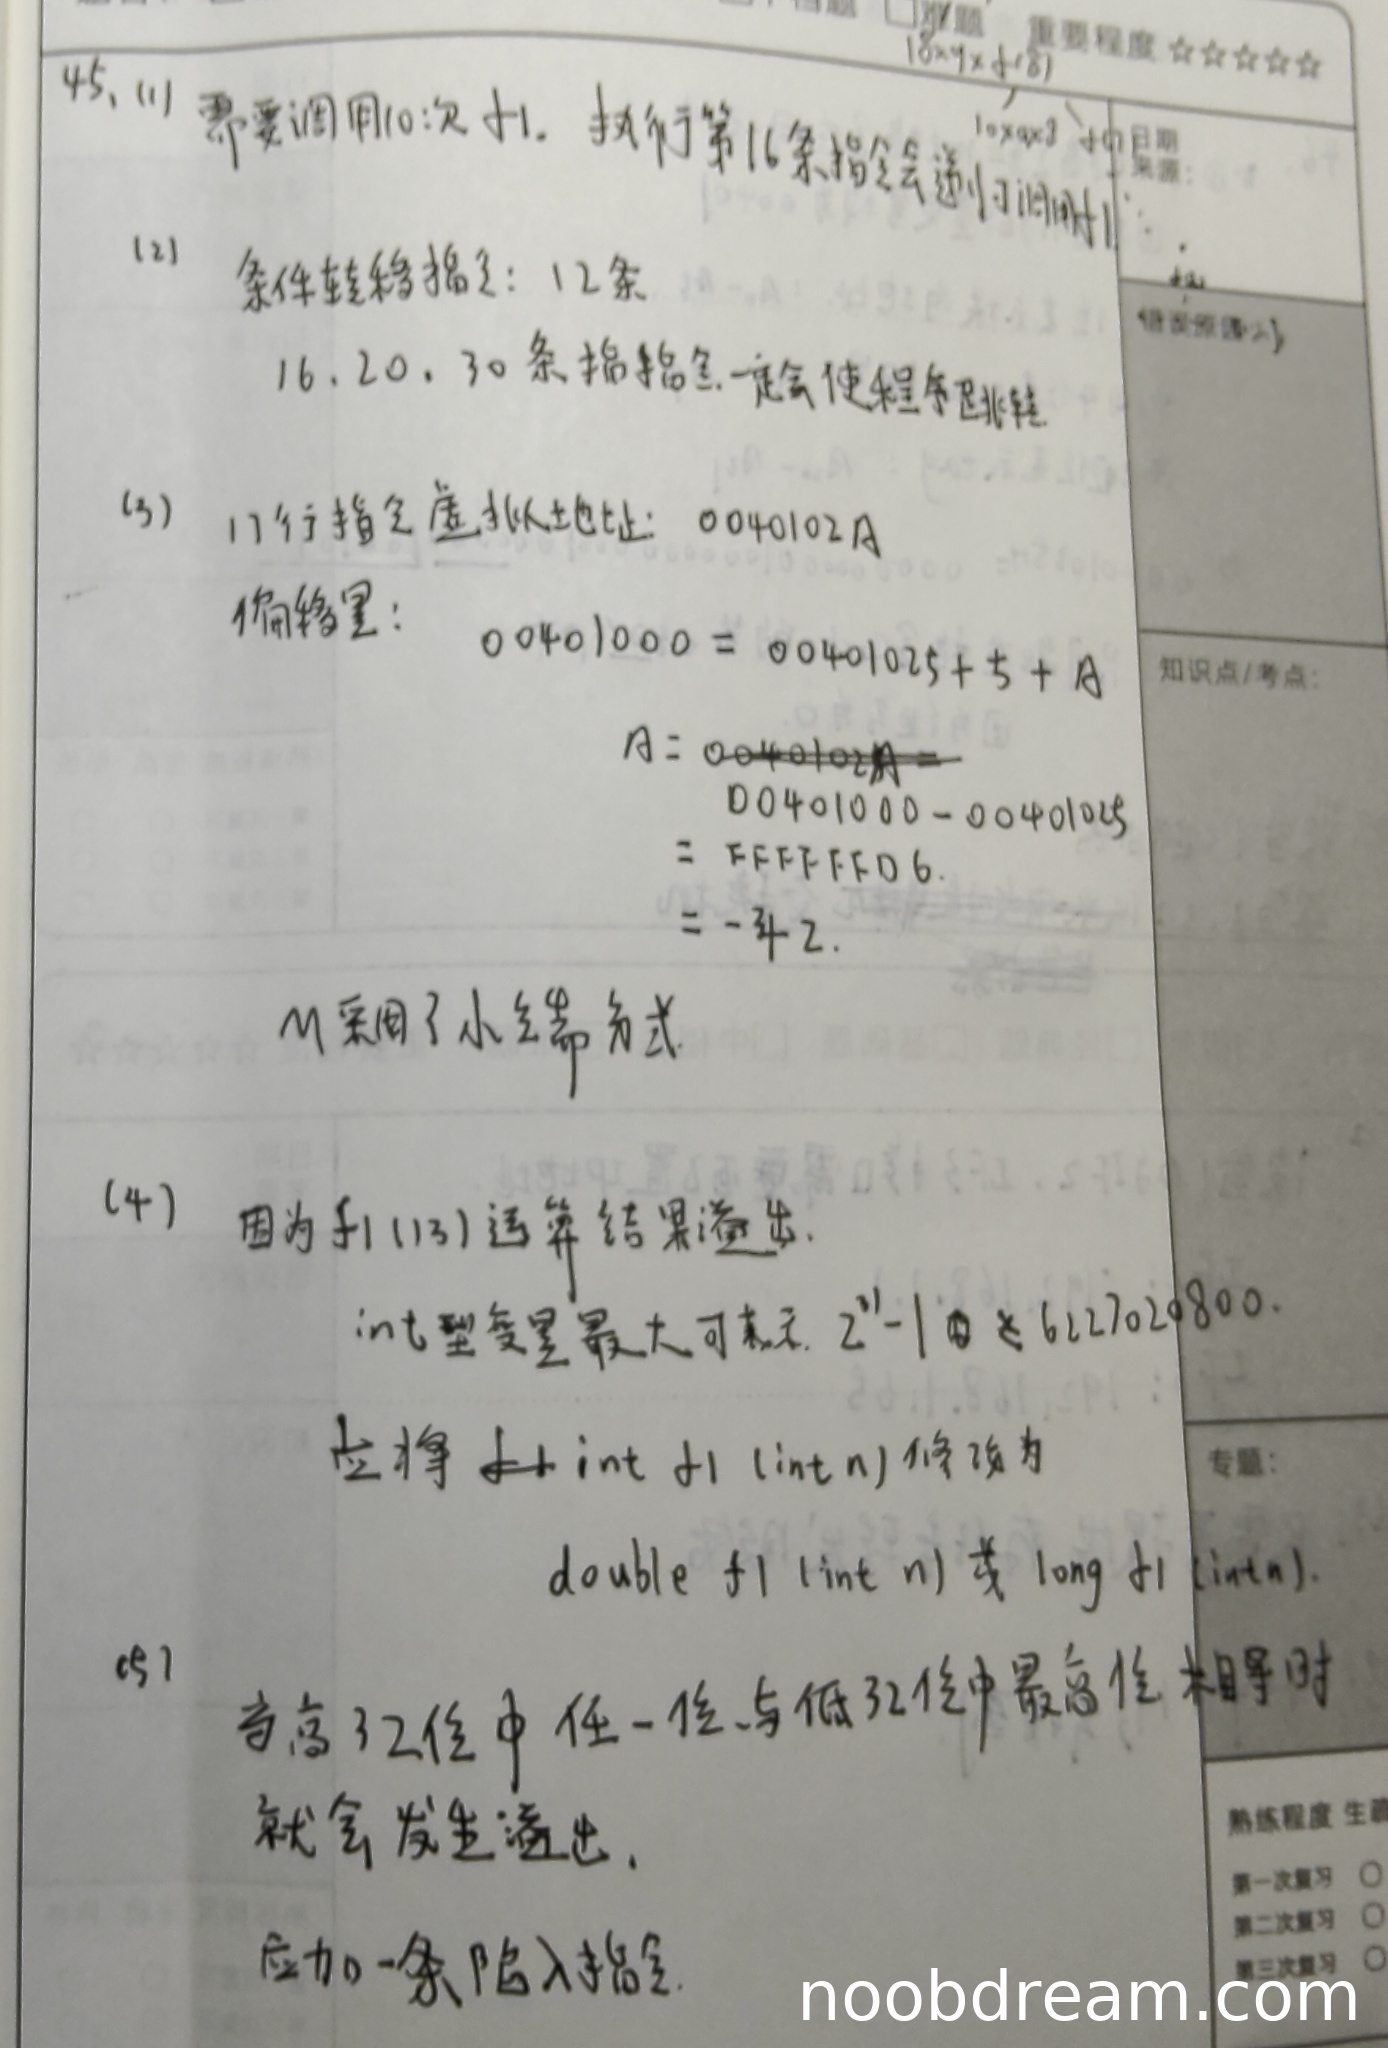 题 重要程度 ☆☆☆☆☆
10×9×f(8)
10×9×8 f(7)
日期
来源:
45. (1) 需要调用10次f1. 执行第16条指令会递归调用f1.
(2) 条件转移指令: 12条
16. 20. 30 条指指令一定会使程序跳转
(3) 17行指令虚拟地址: 0040102A
偏移量: 00401000 = 00401025 + 5 + A
知识点/考点:
A = 0040102A =
00401000 - 00401025
= FFFFFFD6.
= -42.
M采用了小端方式
(4) 因为f1(13)运算结果溢出.
int型变量最大可表示 2^31-1 < 6227020800.
应将 f1 int f1 (int n) 修改为
专题:
double f1 (int n) 或 long f1 (int n).
(5)
当高32位中任一位与低32位中最高位不相等时
就会发生溢出.
应加一条陷入指令.
熟练程度 生疏
第一次复习
第二次复习
第三次复习
noobdream.com